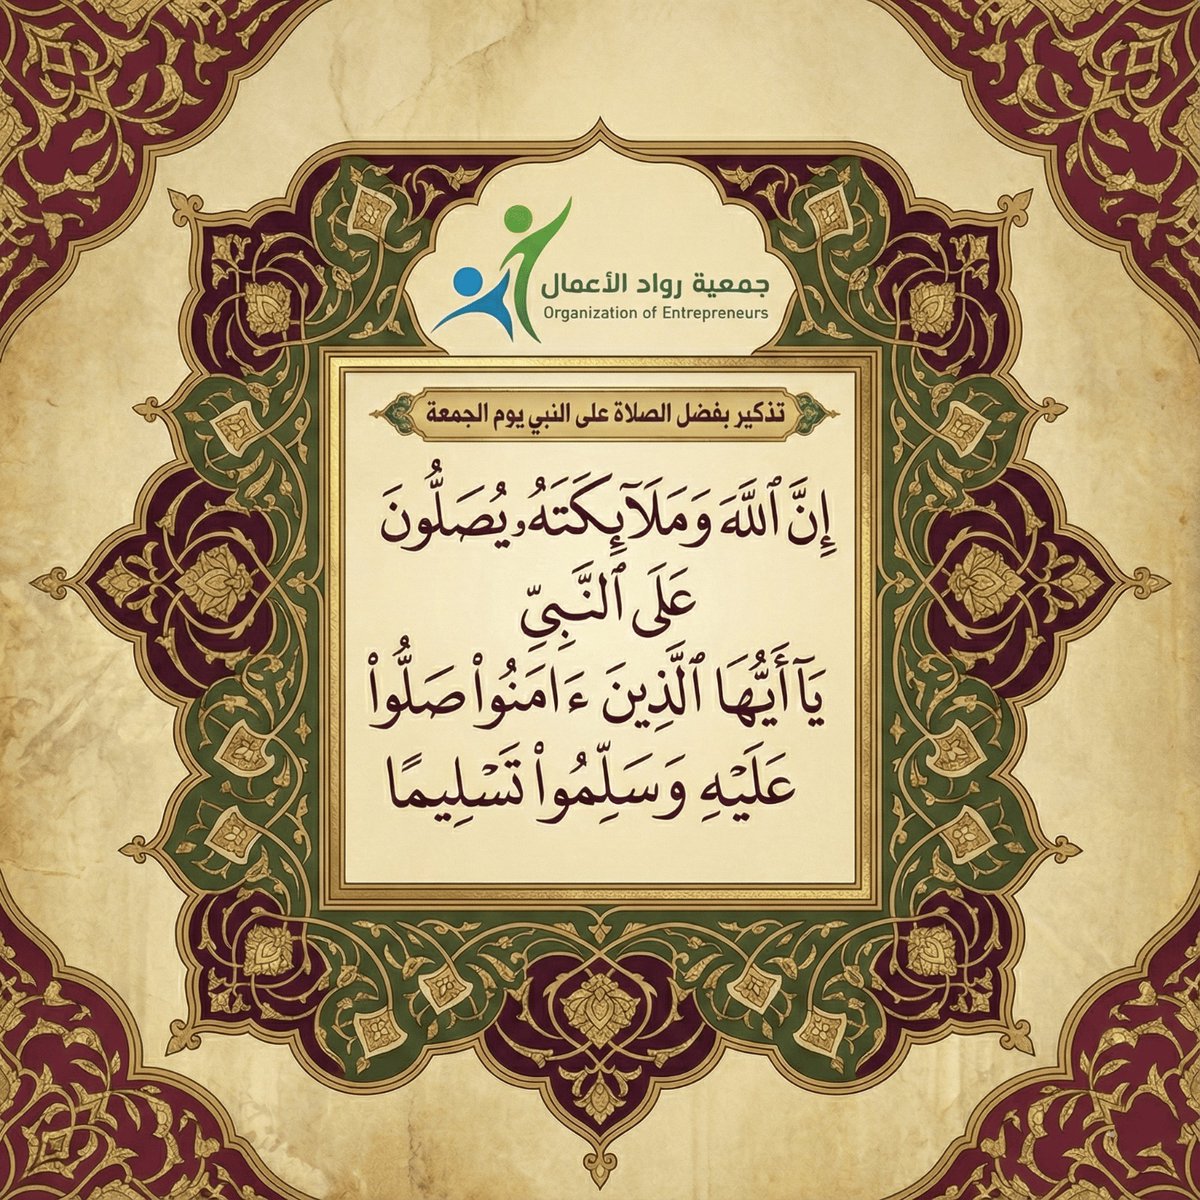 جمعية رواد الأعمال
Organization of Entrepreneurs
تذكير بفضل الصلاة على النبي يوم الجمعة
إِنَّ ٱللَّهَ وَمَلَآئِكَتَهُۥ يُصَلُّونَ
عَلَى ٱلنَّبِيِّ
يَآ أَيُّهَا ٱلَّذِينَ ءَامَنُوا۟ صَلُّوا۟
عَلَيْهِ وَسَلِّمُوا۟ تَسْلِيمًا